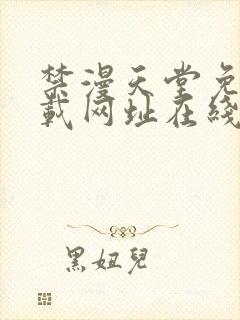 禁漫天堂免
载网址在线
黑妞儿